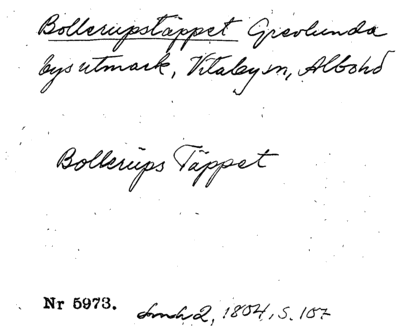 Bollerupstäppet Grevlunda
bys utmark, Vitaby sn, Albo hd
Bollerups Täppet
Nr 5973. 2, 1804, s. 107